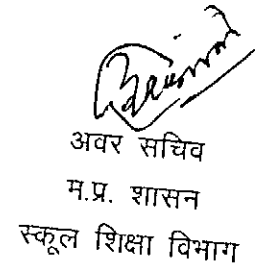 अवर सचिव
म.प्र. शासन
स्कूल शिक्षा विभाग